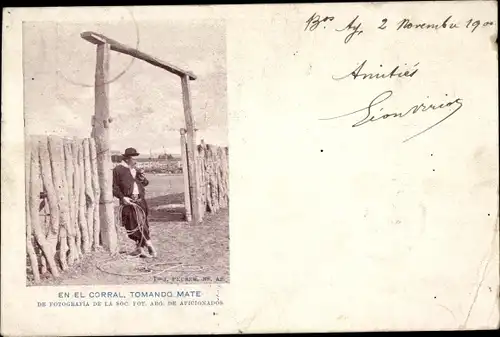 Bos Ay, 2 Novembre 1900
Amitiés
EN EL CORRAL, TOMANDO MATE
DE FOTOGRAFIA DE LA SOC. FOT. ARG. DE AFICIONADOS